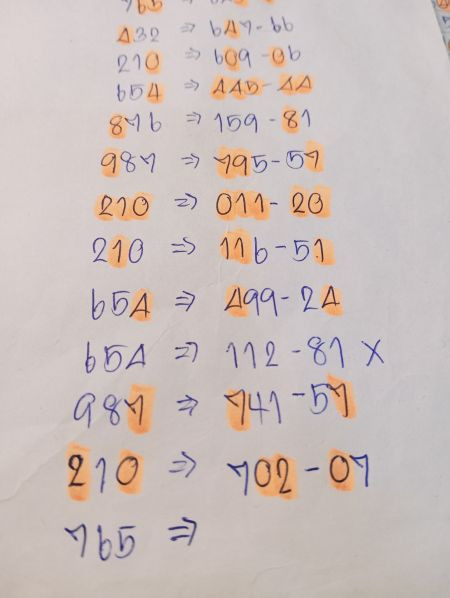 765 ⇒
432 ⇒ 647-66
210 ⇒ 609-06
654 ⇒ 445-44
876 ⇒ 159-81
987 ⇒ 795-57
210 ⇒ 011-20
210 ⇒ 116-51
654 ⇒ 499-24
654 ⇒ 112-81 X
987 ⇒ 741-57
210 ⇒ 702-07
765 ⇒